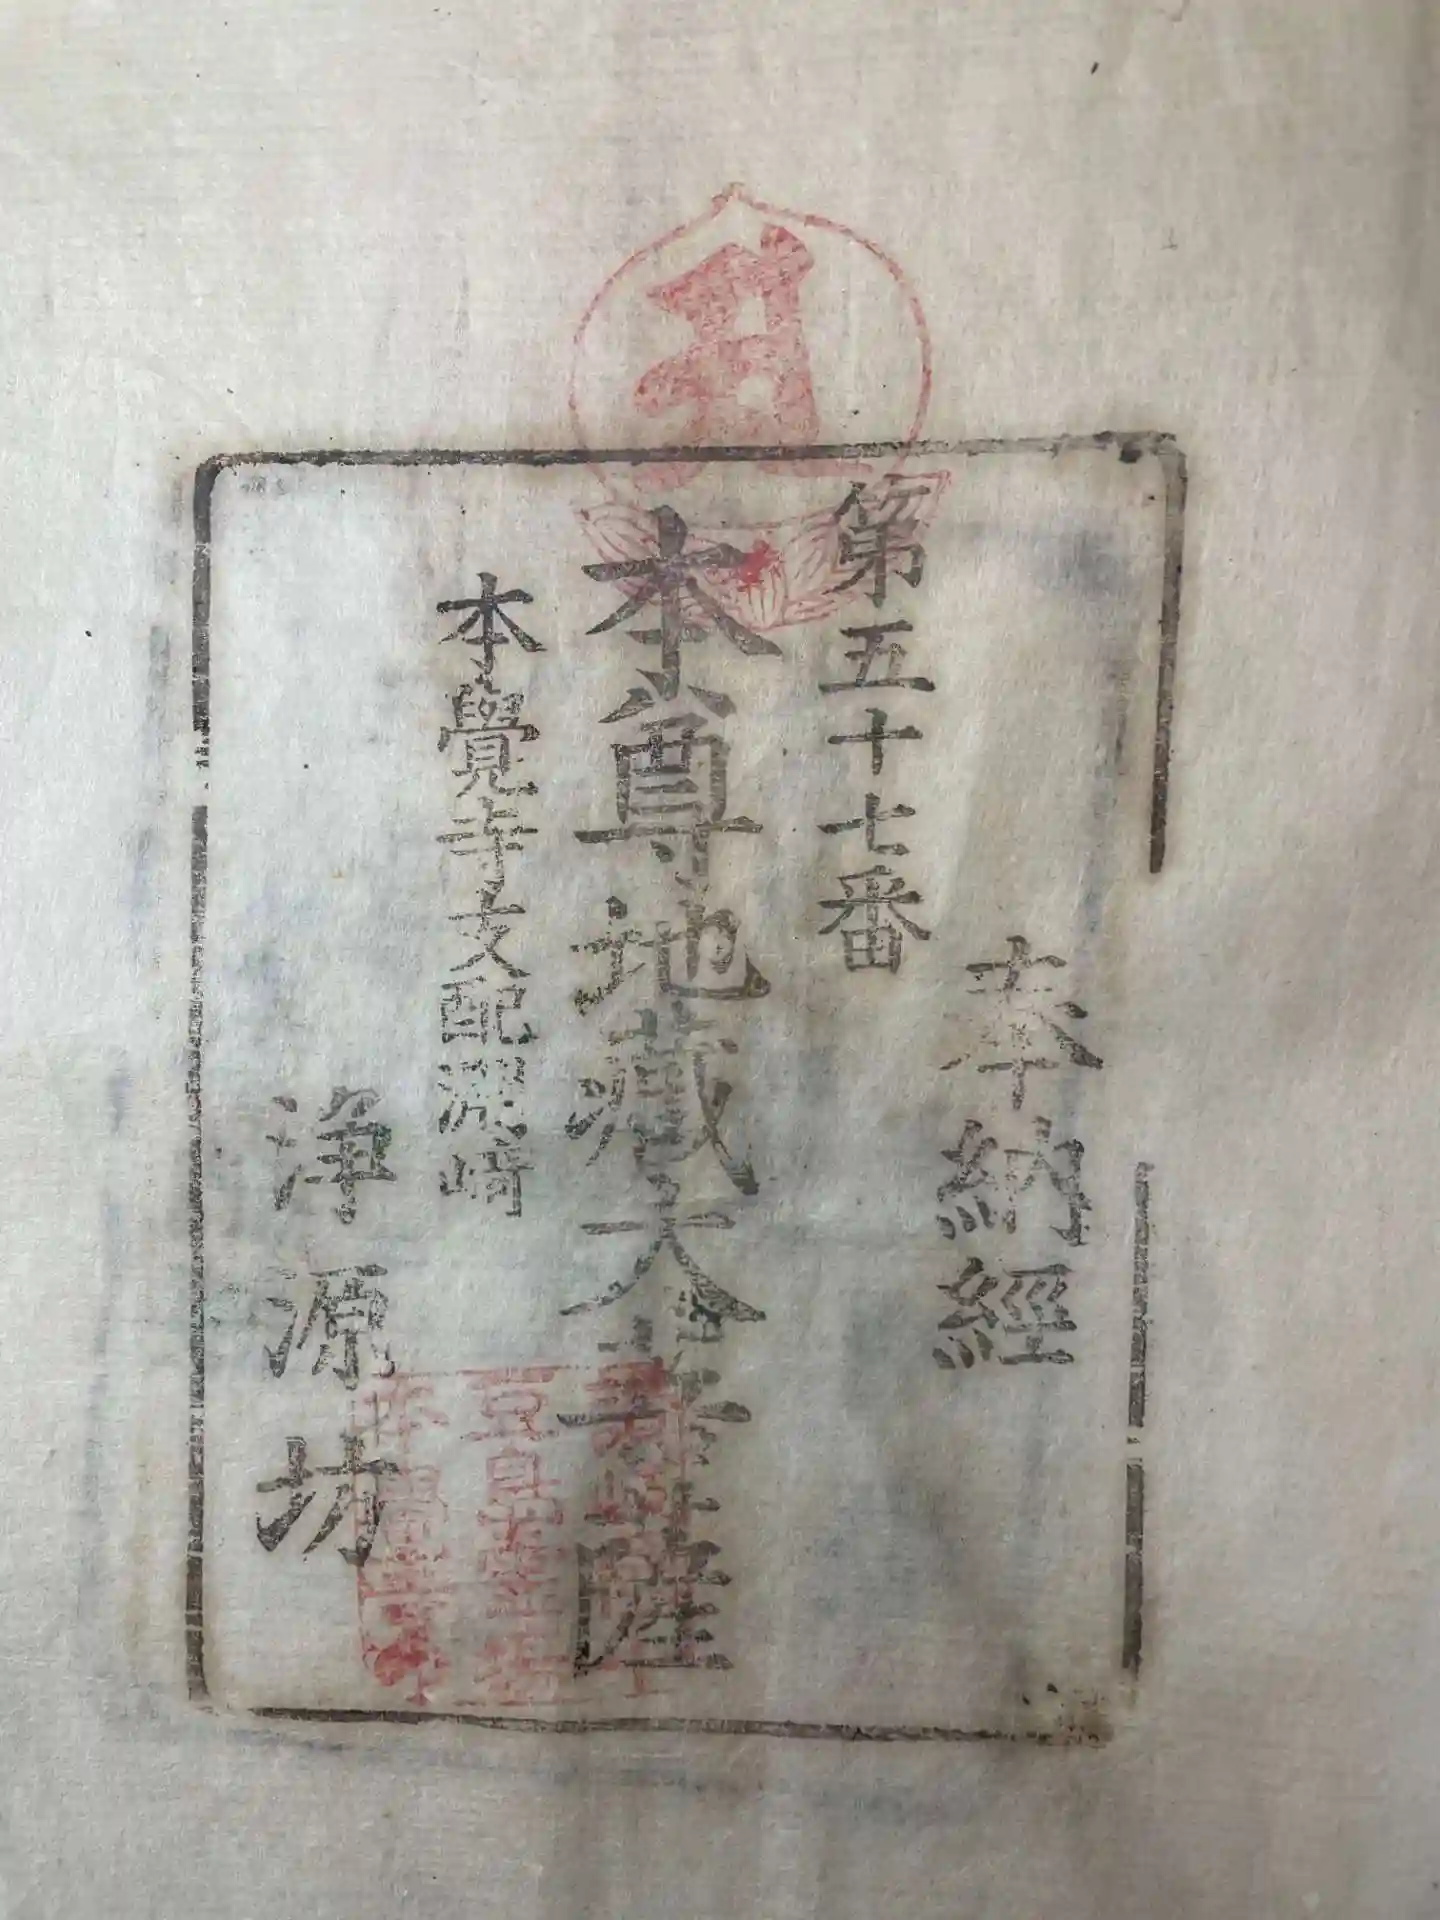 奉納經
第五十七番
本尊地蔵大菩薩
本覺寺支配源崎
淨源坊